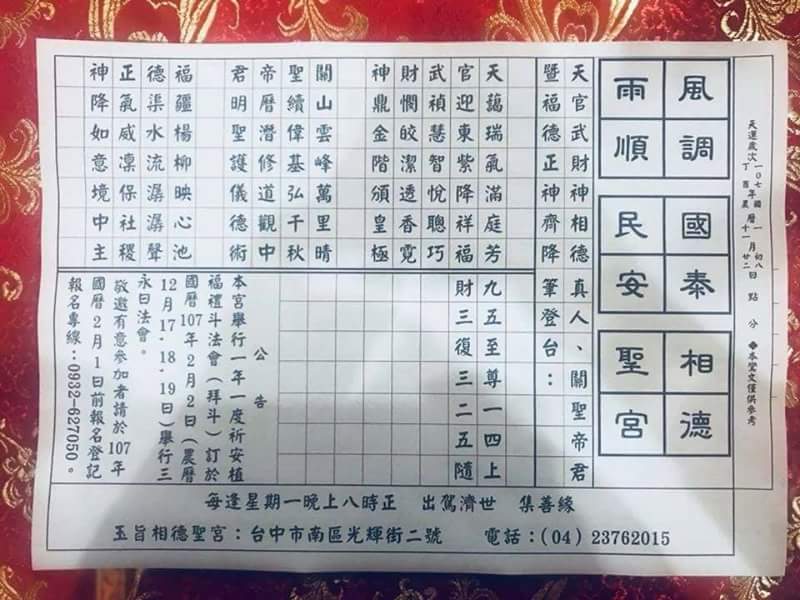 天運歲次 一〇七年國曆一月初八日 點 分 ◆本聖文僅供參考
丁酉農十一廿二
風調
雨順
國泰
民安
相德
聖宮
天官武財神相德真人、關聖帝君
暨福德正神齊降筆登台：
天藹瑞氣滿庭芳 九五至尊一四上
官迎東紫降祥福 財三復三二五隨
武禎慧智悅聰巧
財憫皎潔透香霓
神鼎金階頒皇極
關山雲峰萬里晴
聖續偉基弘千秋
帝曆潛修道觀中
君明聖護儀德術
福疆楊柳映心池
德渠水流潺潺聲
正氣威凜保社稷
神降如意境中主
公告
本宮舉行一年一度祈安植
福禮斗法會（拜斗）訂於
國曆107年2月2日（農曆
12月17.18.19日）舉行三
永日法會。
敬邀有意參加者請於107年
國曆2月1日前報名登記
報名專線：0932-627050。
每逢星期一晚上八時正 出駕濟世 集善緣
玉旨相德聖宮：台中市南區光輝街二號 電話：(04) 23762015